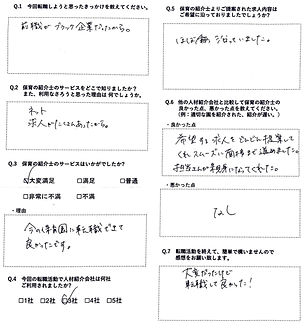 Q.1 今回転職しようと思ったきっかけを教えてください。
前職がブラック企業だったから。
Q.2 保育の紹介士のサービスをどこで知りましたか?
また、利用なさろうと思った理由は何でしょうか。
ネット
求人がたくさんあったから。
Q.3 保育の紹介士のサービスはいかがでしたか?
☑大変満足 □満足 □普通
□非常に不満 □不満
・理由
今の幼稚園に転職できて
良かったです。
Q.4 今回の転職活動で人材紹介会社は何社
ご利用されましたか?
□1社 □2社 ☑3社 □4社 □5社
Q.5 保育の紹介士よりご提案された求人内容は
ご希望に沿っておりましたでしょうか?
ほぼ 沿っていました。
Q.6 他の人材紹介会社と比較して保育の紹介士の
良かった点、悪かった点を教えてください。
(例:適切な園を紹介された、紹介が遅い)
・良かった点
希望する求人をどんどん提案して
くれスムーズに面接まで進めました。
担当さんが親身になってくれた。
・悪かった点
なし
Q.7 転職活動を終えて、簡単で構いませんので
感想をお願い致します。
大変だったけど
転職して良かった!